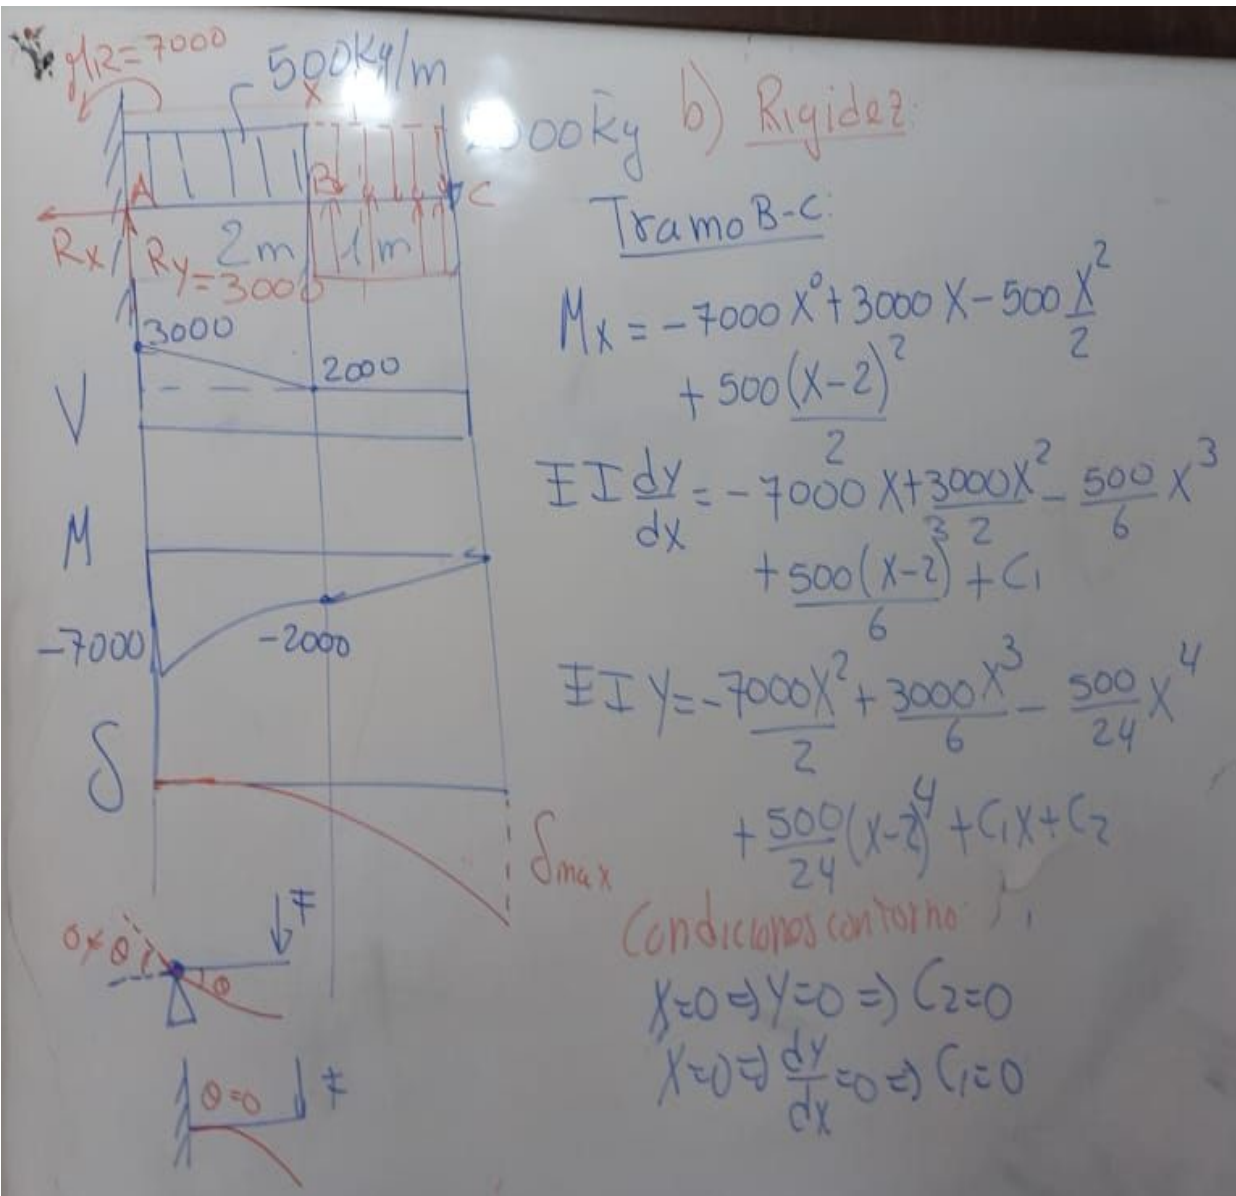 M_R=7000
500kg/m
X
000kg
A
B
C
Rx
Ry=3000
2m
1m
3000
2000
V
M
-7000
-2000
δ
δmax
F
θ
θ
F
θ=0
b) Rigidez:
Tramo B-C:
Mx = -7000X⁰+3000X-500X²/2
+500(X-2)²/2
EI dy/dx = -7000X+3000X²/2 - 500/6 X³
+500(X-2)³/6 +C₁
EI Y=-7000X²/2 + 3000X³/6 - 500/24 X⁴
+500/24 (X-2)⁴ +C₁X+C₂
Condiciones contorno
X=0⇒Y=0⇒C₂=0
X=0⇒dy/dx=0⇒C₁=0